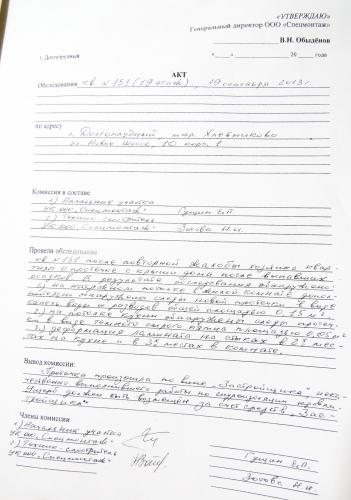 «УТВЕРЖДАЮ»
Генеральный директор ООО «Спецмонтаж»
В.Н. Обыдёнов
« » 20 года
г. Долгопрудный
АКТ
Обследования кв N 151 (19 этаж), 19 сентября 2013 г.
по адресу
г. Долгопрудный, мкр. Хлебниково
ул. Новое Шоссе, 10 корп. 1
Комиссия в составе
1) Начальник участка
УК ООО „Спецмонтаж" Гущин Е.П.
2) Техник смотритель
УК ООО „Спецмонтаж" Зотова Н.И.
Провели обследование
кв N 151 после повторной жалобы хозяина квар-
тиры о протечке с крыши дома после выпавших
осадков. В результате обследования обнаружено:
1) на натяжном потолке в жилой комнате допол-
нительно обнаружены следы новой протечки в виде
капель воды и разводов общей площадью 0,15 м²
2) на потолке кухни обнаружены следы протеч-
ки в виде темного сырого пятна площадью 0,05 м²
3) деформация ламината на стыках в 2х мес-
тах на кухне и в 3х местах в комнате.
Вывод комиссии:
Протечка произошла по вине „Застройщика", нека-
чественно выполнившего работы по
должен быть возмещён за счет средств „Зас-
тройщика"
Члены комиссии
1) Начальник участка
УК ООО „Спецмонтаж" Гущин Е.П.
2) Техник-смотритель
УК ООО „Спецмонтаж" Зотова Н.И.